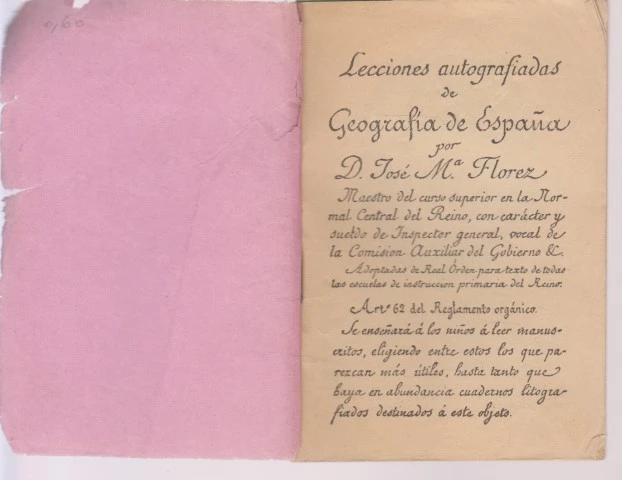 0,60
Lecciones autografiadas
de
Geografía de España
por
D. José M.ª Florez
Maestro del curso superior en la Nor-
mal Central del Reino, con carácter y
sueldo de Inspector general, vocal de
la Comision Auxiliar del Gobierno &.
Adoptadas de Real Órden para texto de todas
las escuelas de instruccion primaria del Reino.
Art.º 62 del Reglamento orgánico.
Se enseñará á los niños á leer manus-
critos, eligiendo entre estos los que pa-
rezcan más útiles, hasta tanto que
haya en abundancia cuadernos litogra-
fiados destinados á este objeto.